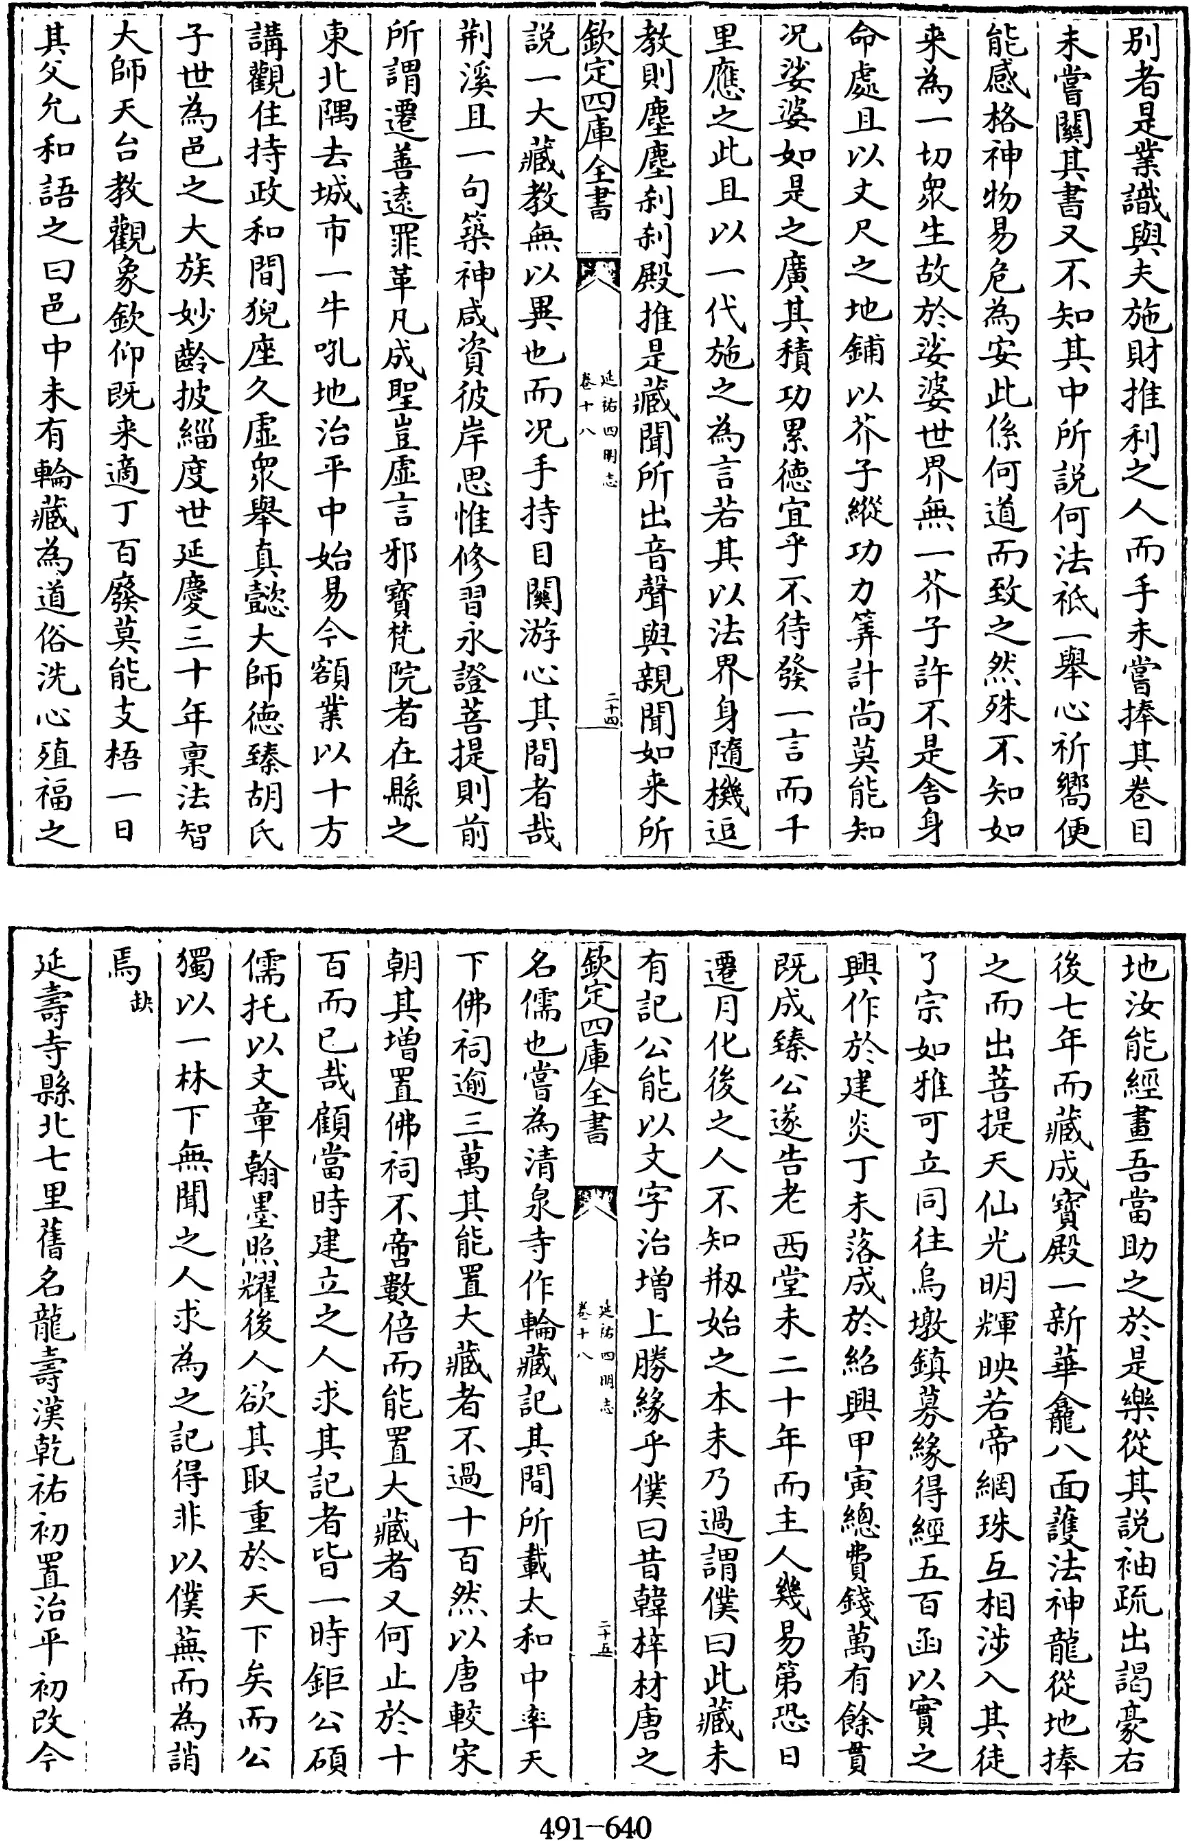 别者是業識與夫施財推利之人而手未嘗捧其卷目
未嘗關其書又不知其中所説何法袛一舉心祈嚮便
能感格神物易危為安此係何道而致之然殊不知如
来為一切衆生故於娑婆世界無一芥子許不是舍身
命處且以丈尺之地鋪以芥子縱功力筭計尚莫能知
况娑婆如是之廣其積功累徳宜乎不待發一言而千
里應之此且以一代施之為言若其以法界身隨機逗
教則塵塵刹刹殿推是藏聞所出音聲與親聞如来所
欽定四庫全書
延祐四明志
卷十八
二十四
説一大藏教無以異也而况手持目關游心其間者哉
荆溪且一句築神咸資彼岸思惟修習永證菩提則前
所謂遷善逺罪革凡成聖豈虚言邪寶梵院者在縣之
東北隅去城市一牛吼地治平中始易今額業以十方
講觀住持政和間猊座久虚衆舉真懿大師徳臻胡氏
子世為邑之大族妙齡披緇度世延慶三十年稟法智
大師天台教觀象欽仰既来適丁百廢莫能支梧一日
其父允和語之曰邑中未有輪藏為道俗洗心殖福之
地汝能經畫吾當助之於是樂從其説袖疏出謁豪右
後七年而藏成寶殿一新華龕八面護法神龍從地捧
之而出菩提天仙光明輝映若帝網珠互相涉入其徒
了宗如雅可立同往烏墩鎮募緣得經五百函以實之
興作於建炎丁未落成於紹興甲寅總費錢萬有餘貫
既成臻公遂告老西堂未二十年而主人幾易第恐日
遷月化後之人不知剏始之本末乃過謂僕曰此藏未
有記公能以文字治增上勝緣乎僕曰昔韓梓材唐之
欽定四庫全書
延祐四明志
卷十八
二十五
名儒也嘗為清泉寺作輪藏記其間所載太和中率天
下佛祠逾三萬其能置大藏者不過十百然以唐較宋
朝其增置佛祠不啻數倍而能置大藏者又何止於十
百而已哉顧當時建立之人求其記者皆一時鉅公碩
儒托以文章翰墨照耀後人欲其取重於天下矣而公
獨以一林下無聞之人求為之記得非以僕蕪而為誚
焉缺
延壽寺縣北七里舊名龍壽漢乾祐初置治平初改今
491-640